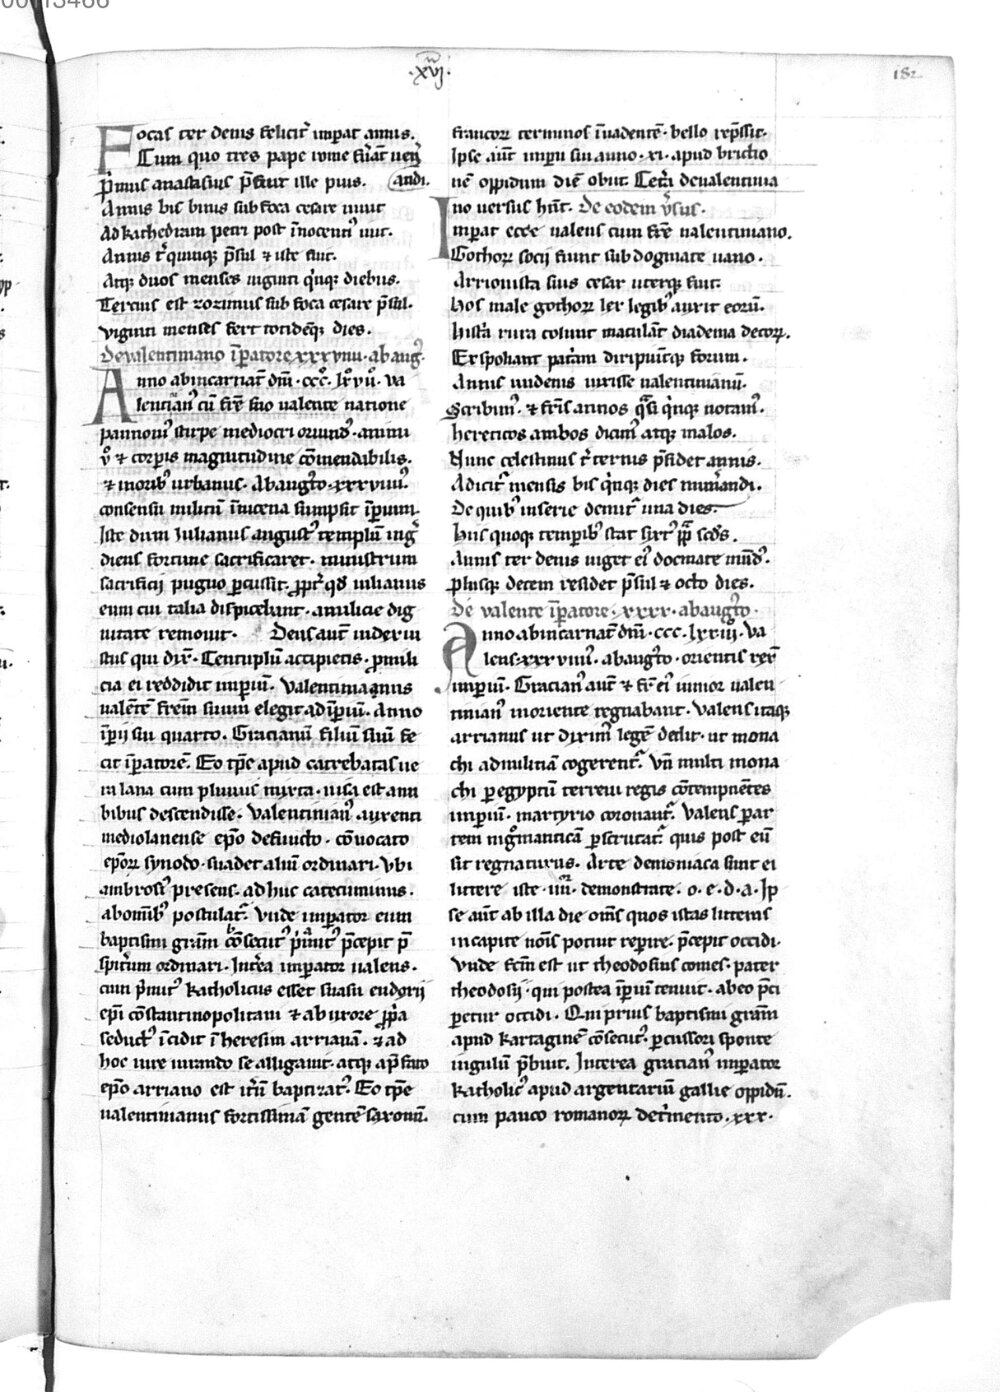 ·xvi·
182
Focas ter denis felicit᷑ impat annis.
Cum quo tres pape rome fuerāt uen
p̄mus anastasius p̄fuit ille pius. andi.
Annis bis binis sub foca cesare uiuit
Ad kathedram petri post īnocenti᷒ uit.
Annis t᷑ quinque p̄sul & iste fuit.
Atq; duos menses uiginti q̇nque diebus.
Tercius est zozimus sub foca cesare p̄sul.
viginti menses fert totideq; dies.
De valentiniano īpatore xxxviiii · ab aug᷒.
Anno ab incarnat̄ dn̄i · ccc · lxvii · va
lentiani᷒ cū fr̄e suo valente natione
pannoni᷒ stirpe mediocri oriund᷒ · animi
v̊ & corpis magnitudine cōmendabilis.
& morib᷒ urbanus · Ab augto · xxxviiii᷒
consensu militū in nicena sumpsit īpium.
Iste dum iulianus august᷒ templū ing᷑
diens fortune sacrificaret · ministrum
sacrificii pugno pcussit · ppt᷑ qd iulianus
eum cui talia displicebant · a milicie dig
nitate remouit · Deus aut̄ uideriu
stus qui dix̄ · Centuplū accipietis · p mili
cia ei reddidit imperiū · valentinianus
valēte fr̄em suum elegit ad īpiū. Anno
īpii sui quarto · Gracianū filiū suū fe
cit īpatorē. Eo tpe apud catrebatas ue
ra lana cum pluuiis mixta · uisa est a nu
bibus descendisse · valentinian᷒ auxenti
mediolanense epo defuncto · cōuocato
epoꝝ synodo · suadet aliū ordinari · vbi
ambrosi᷒ presens · ad huc catecuminus.
ab omib᷒ postulat᷑ · vnde imperator eum
baptismi gr̄am cōsecut᷒ pmit᷒ p̄cepit p̄
spit᷑um ordinari · Int᷑ea imperator ualens ·
cum p̄mit᷒ katholicus esset suasu eudoxii
epi cōstantinopolitani & ab uxore ppa
seduct᷒ īcidit ī heresim arrianā · & ad
hoc iure iurando se alligauit · atque ap̄ fato
epo arriano est it̄m baptizat᷒ · Eo tpe
valentinianus fortissimā gentē saxonū ·
francoꝝ terminos īuadentē · bello rep̄ssit ·
Ipse aut̄ imperii sui anno · xi · apud bricio
nē oppidum diē obiit · Cet᷑a de valentinia
no uersus hn̄t · De eodem ūsus ·
Imperat ecce valens cum fr̄e valentiniano.
Gothoꝝ socii fiunt sub dogmate uano.
Arrionista suus cesar uterq; fuit.
Hos male gothoꝝ lex legib᷒ aurit eorū.
Iusta rura colunt maculāt diadema decoꝝ.
Exspoliant patr̄am diripiuntq; forum.
Annis undenis uixisse ualentinianū.
Scribim᷒ · & fr̄is annos q̄si q̇nq; notam᷒.
hereticos ambos dicim᷒ atq; malos.
Nunc celestinus t᷑ ternis p̄sidet annis.
Adicit᷑ mensis bis q̇nq; dies numandi.
De quib᷒ inserie demit᷑ una dies.
Huis quoq; tempib᷒ stat sixt᷒ pp̄ scd̄s.
Annis ter denis uiget ei᷒ docmate mūd᷒.
Plusq; decem residet p̄sul & octo dies.
De valente īpatore · xxxx · ab augto ·
Anno ab incarnat̄ dn̄i · ccc · lxxiiij · va
lens · xxxviiii · ab augto · orientis rex̄
imperiū · Gracian᷒ aut̄ & fr̄ ei᷒ iunior ualen
tinian᷒ in oriente regnabant · valens itaq;
arrianus ut dixim᷒ legē dedit · ut mona
chi ad militiā cogerent᷑. vn̄ multi mona
chi p egyptū terreni regis cōtempnētes
imperiū · martyrio coronant᷑. valens par
tem nig᷑manticā pscrutat᷑ · quis post eū
sit regnaturus · Arte demoniaca sunt ei
littere iste · iiii · demonstrate · o · e · d · a · Ip
se aut̄ ab illa die om̄s quos istas litteris
in capite nōis potuit repire · p̄cepit occidi ·
Vnde fcm̄ est ut theodosius comes · pater
theodosij · qui postea īpiū tenuit · ab eo p̄ci
peretur occidi · Qui prius baptismi gr̄am
apud kartaginē cōsecut᷒ · pcussori sponte
iugulū p̄buit. Interea gracian᷒ imperator
katholic᷒ apud argentariū gallie oppidū.
cum pauco romanoꝝ det᷑mento · xxx ·